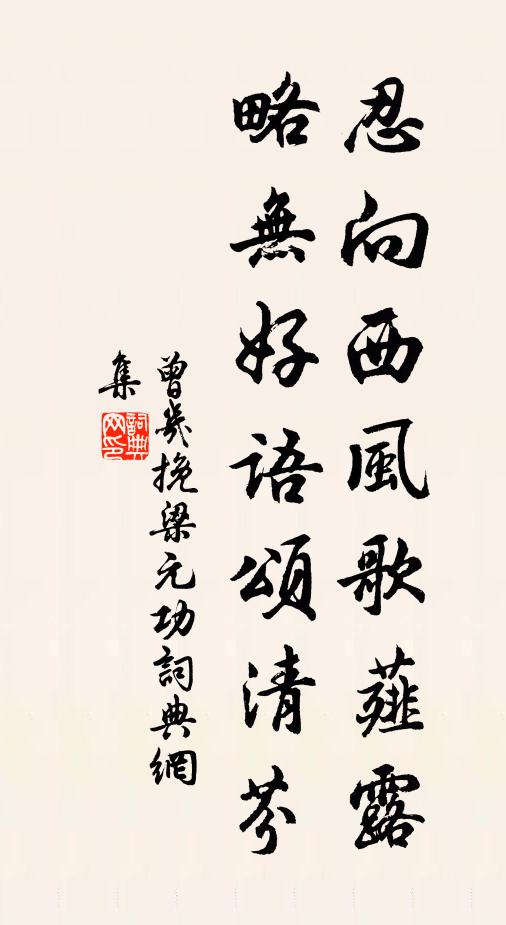 忍向西風歌薤露
略無好語頌清芬
曾幾挽梁元功詞典網
集
詞典
网印